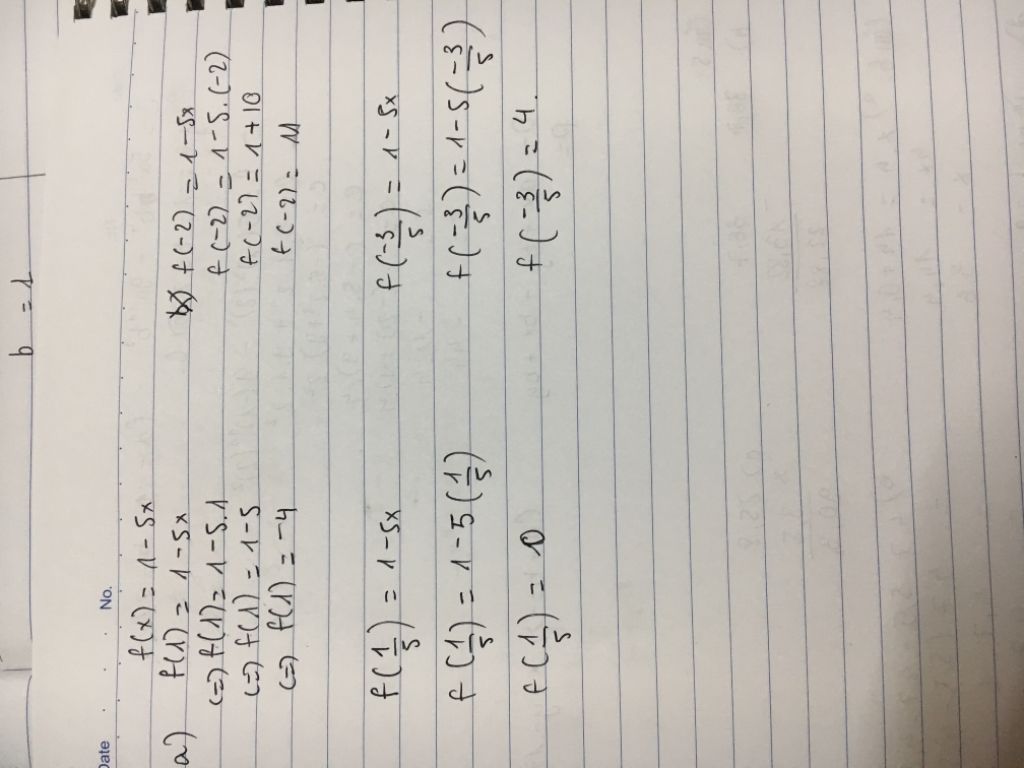 b = 1
Date No.
f(x) = 1 - 5x
a) f(1) = 1 - 5x
(=) f(1) = 1 - 5.1
(=) f(1) = 1 - 5
(=) f(1) = -4
f(-2) = 1 - 5x
f(-2) = 1 - 5.(-2)
f(-2) = 1 + 10
f(-2) = 11
f(1/5) = 1 - 5x
f(1/5) = 1 - 5(1/5)
f(1/5) = 0
f(-3/5) = 1 - 5x
f(-3/5) = 1 - 5(-3/5)
f(-3/5) = 4.